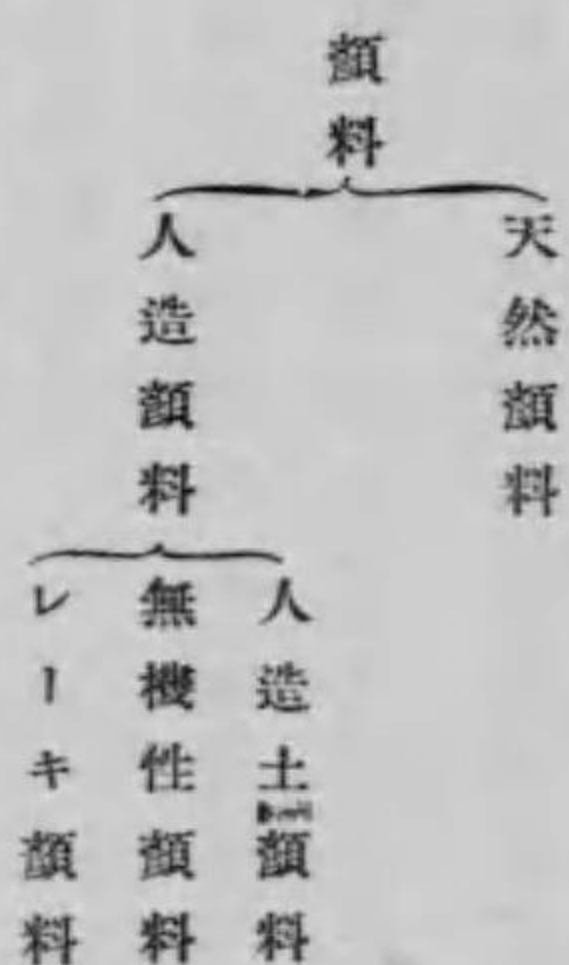 顏料
天然顏料
人造顏料
人造土顏料
無機性顏料
レーキ顏料